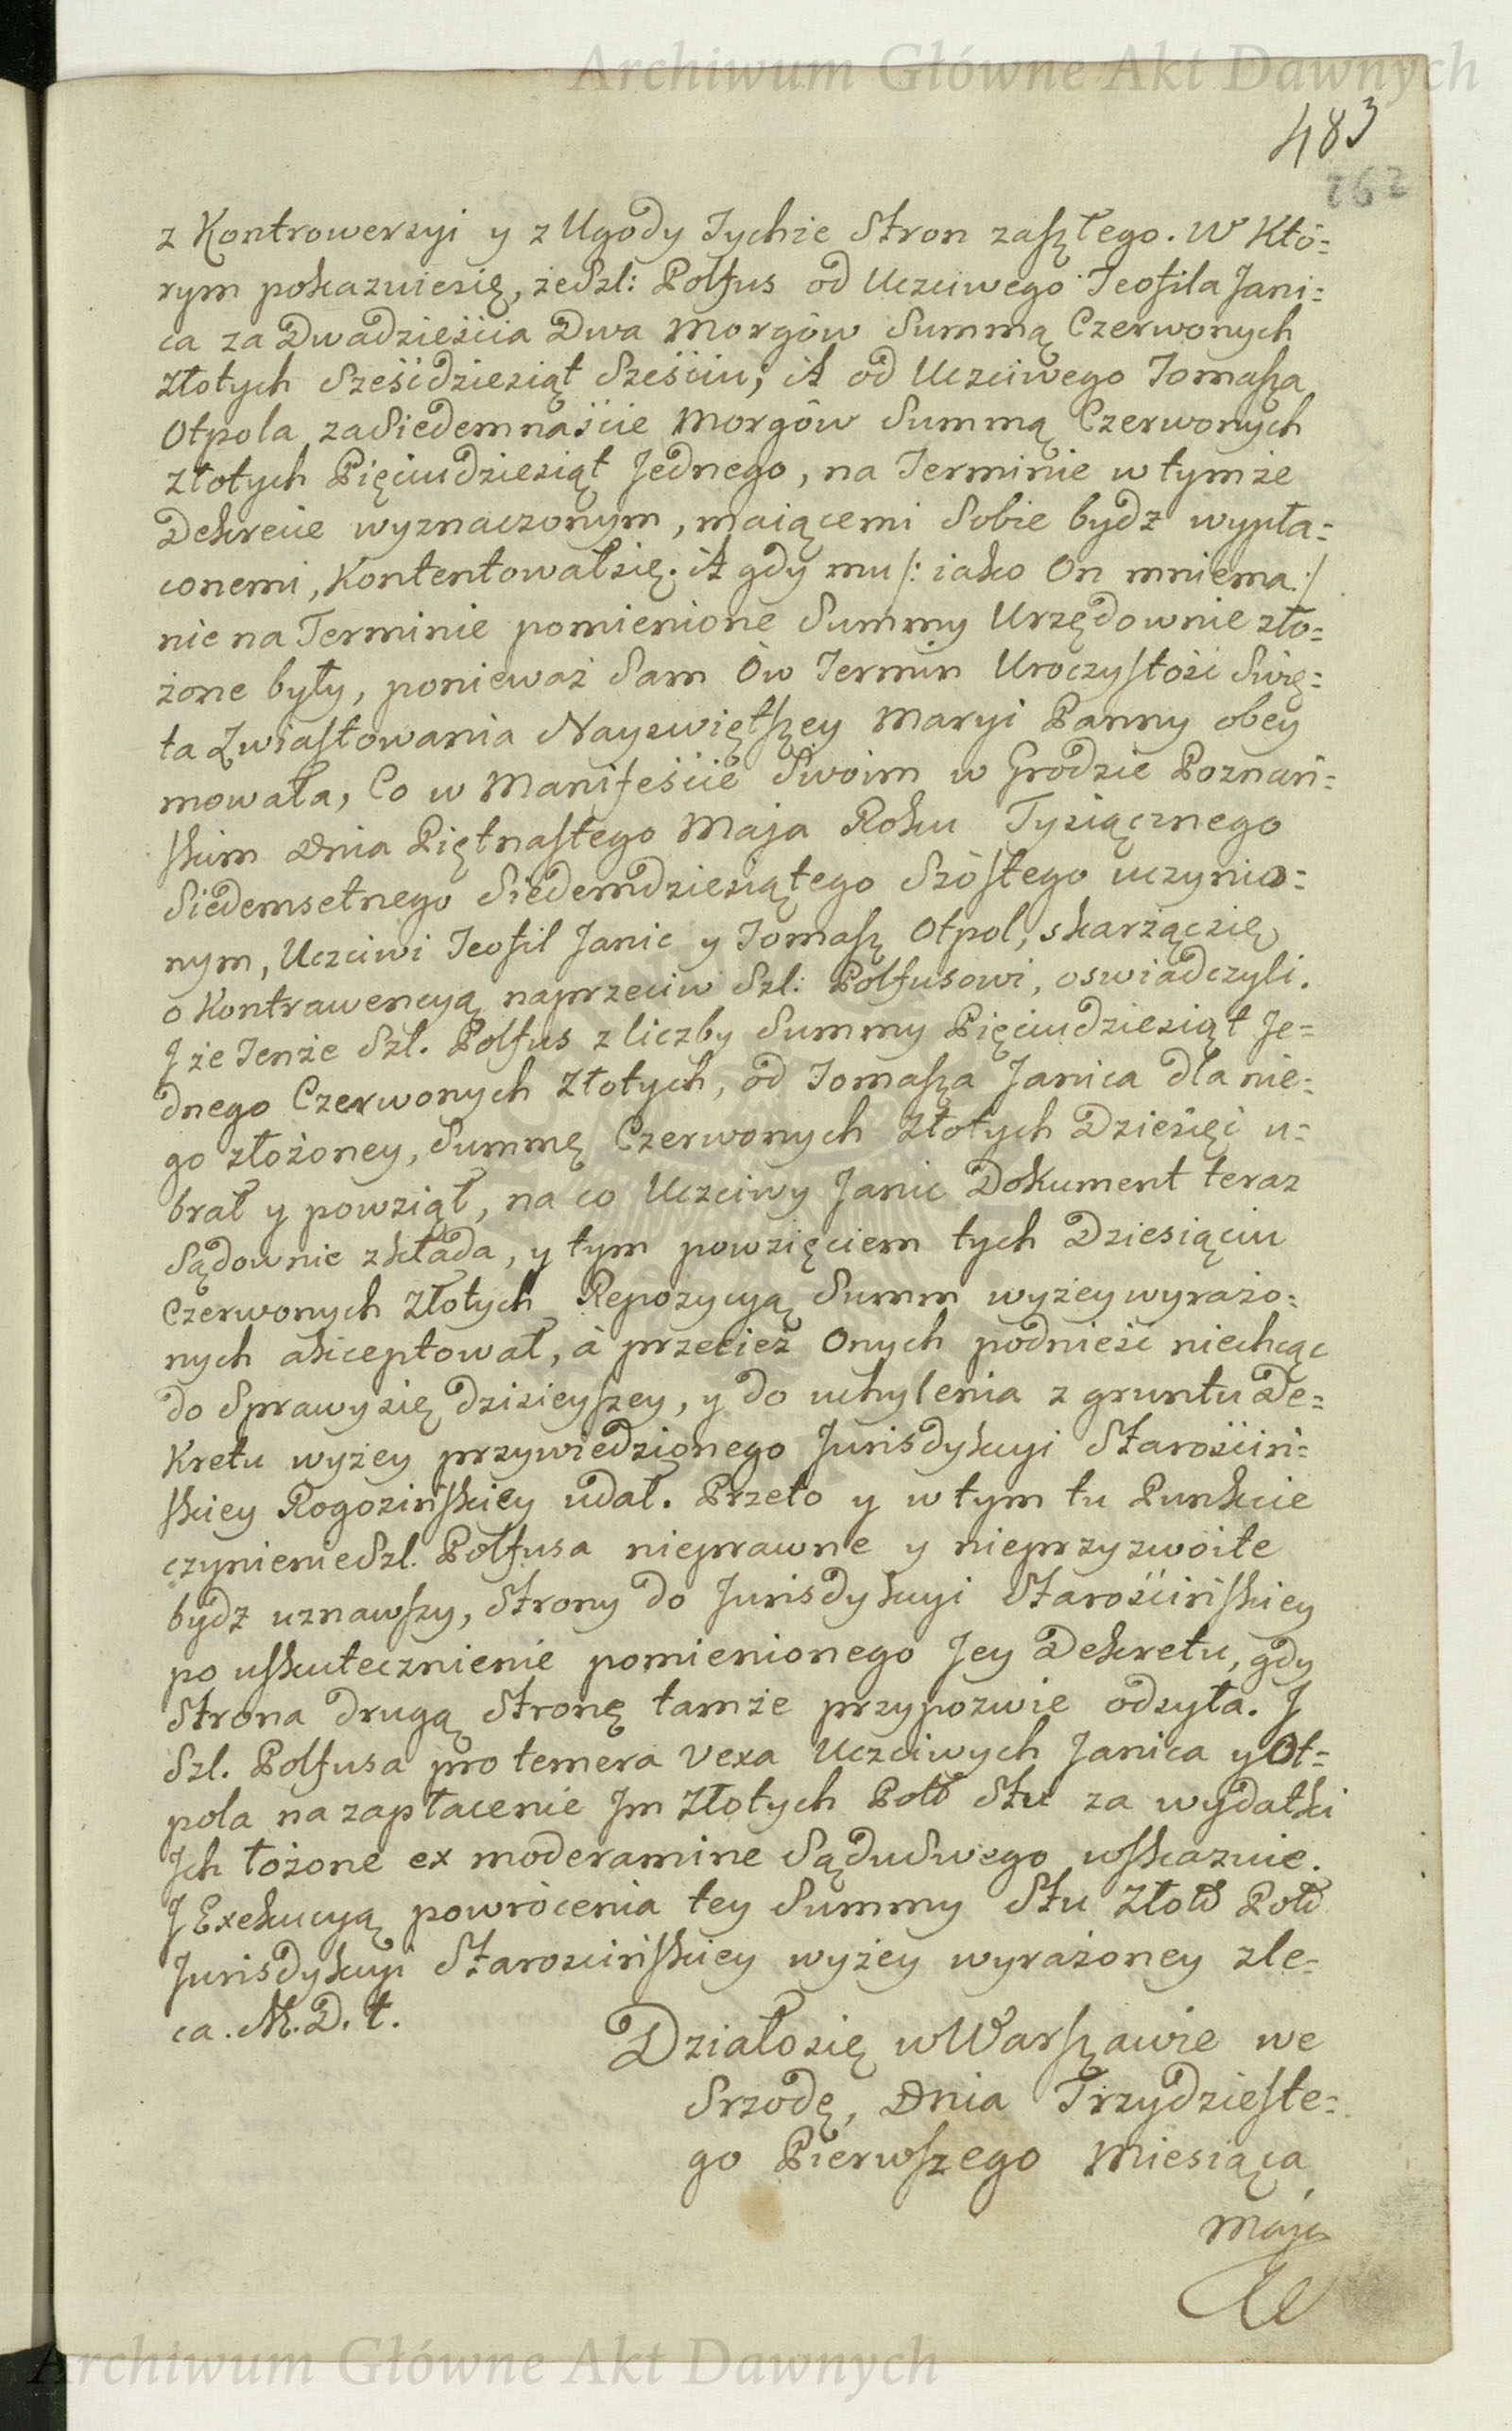 Archiwum Główne Akt Dawnych
483
262
z Kontrowersyi y z Ugody Tychże Stron zaszłego. W Któ=
rym pokazuiesię, żeSzl: Polfus od Uczciwego Teofila Jani=
ca za Dwadzieścia Dwa Morgów Summą Czerwonych
Złotych Sześćdziesiąt Sześciu; A od Uczciwego Tomasza
Otpola zaSiedemnaście Morgów Summą Czerwonych
Złotych Pięciudziesiąt Jednego, na Terminie w tymże
Dekrecie wyznaczonym, maiącemi Sobie bydz wypła=
conemi, Kontentowałsię. A gdy mu /: iako On mniema :/
nie na Terminie pomienione Summy Urzędownie zło=
żone były, ponieważ Sam Ow Termin Uroczystość Swię=
ta Zwiastowania Nayswiętszey Maryi Panny obey
mowała, Co w Manifeście Swoim w Grodzie Poznań=
skim Dnia Piętnastego Maja Roku Tysiącznego
Siedemsetnego Siedemdziesiątego Szóstego uczynio=
nym, Uczciwi Teofil Janic y Tomasz Otpol, skarżącsię
o Kontrawencyą naprzeciw Szl: Polfusowi, oswiadczyli.
J że Tenże Szl. Polfus z liczby Summy Pięciudziesiąt Je=
dnego Czerwonych Złotych, od Tomasza Janica dla nie=
go złożoney, Summę Czerwonych Złotych Dziesięć u=
brał y powziął, na co Uczciwy Janic Dokument teraz
Sądownie zkłada, y tym powzięciem tych Dziesiąciu
Czerwonych Złotych Repozycyą Summ wyżey wyrażo=
nych akceptował, à przecież Onych podnieść niechcąc
do Sprawy się dzisieyszey, y do uchylenia z gruntu De=
Kretu wyżey przywiedzionego Jurisdykcyi Starościń=
skiey Rogozińskiey udał. Przeto y w tym tu Punkcie
czynienieSzl. Polfusa nieprawne y nieprzyzwoite
bydz uznawszy, Strony do Jurisdykcyi Starościńskiey
po uskutecznienie pomienionego Jey Dekretu, gdy
Strona drugą Stronę tamże przypozwie odsyła. J
Szl. Polfusa pro temera vexa Uczciwych Janica y Ot=
pola na zapłacenie Jm Złotych Pols Stu za wydatki
Jch łożone ex moderamine SąduSwego wskazuie.
J Exekucyą powrócenia tey Summy Stu Złots Pols
Jurisdykcyi Starościńskiey wyżey wyrażoney zle=
ca. M. D. t.
Działosię wWarszawie we
Srzodę, Dnia Trzydzieste=
go Pierwszego Miesiąca
Maja
Archiwum Główne Akt Dawnych